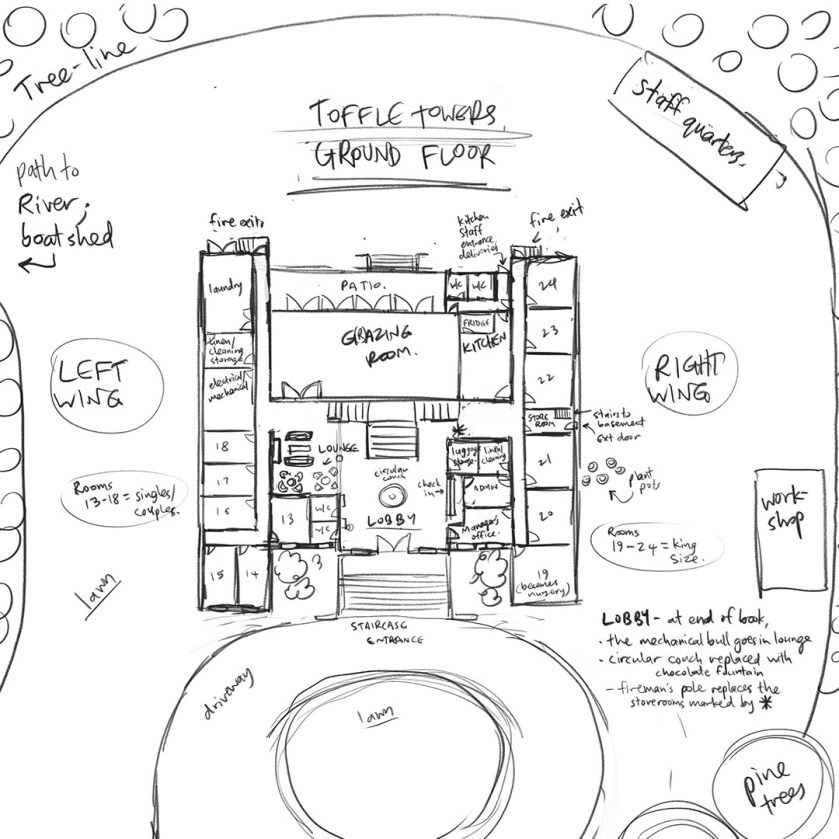 Tree-line
TOFFLE TOWERS
GROUND FLOOR
staff quarters.
path to
River,
boatshed
fire exit
Kitchen
staff
entrance
deliveries
fire exit
laundry
PATIO.
W/C
W/C
24
FRIDGE
KITCHEN
23
GRAZING
ROOM.
linen/
cleaning
storage
electrical/
mechanical
22
LEFT
WING
RIGHT
WING
STORE
ROOM
stairs to
basement
ext door
18
LOUNGE
luggage
storage
linen/
cleaning
21
17
circular
couch
check
in
ADMIN
plant
pots
Rooms
13-18 = singles/
couples.
16
13
W/C
W/C
LOBBY
Manager's
office.
20
work-
shop
Rooms
19-24 = King
Size.
15
14
19
(becomes
nursery)
lawn
STAIRCASE
ENTRANCE
LOBBY - at end of book,
· the mechanical bull goes in lounge
· circular couch replaced with
chocolate fountain
- fireman's pole replaces the
storerooms marked by *
driveway
lawn
pine
trees